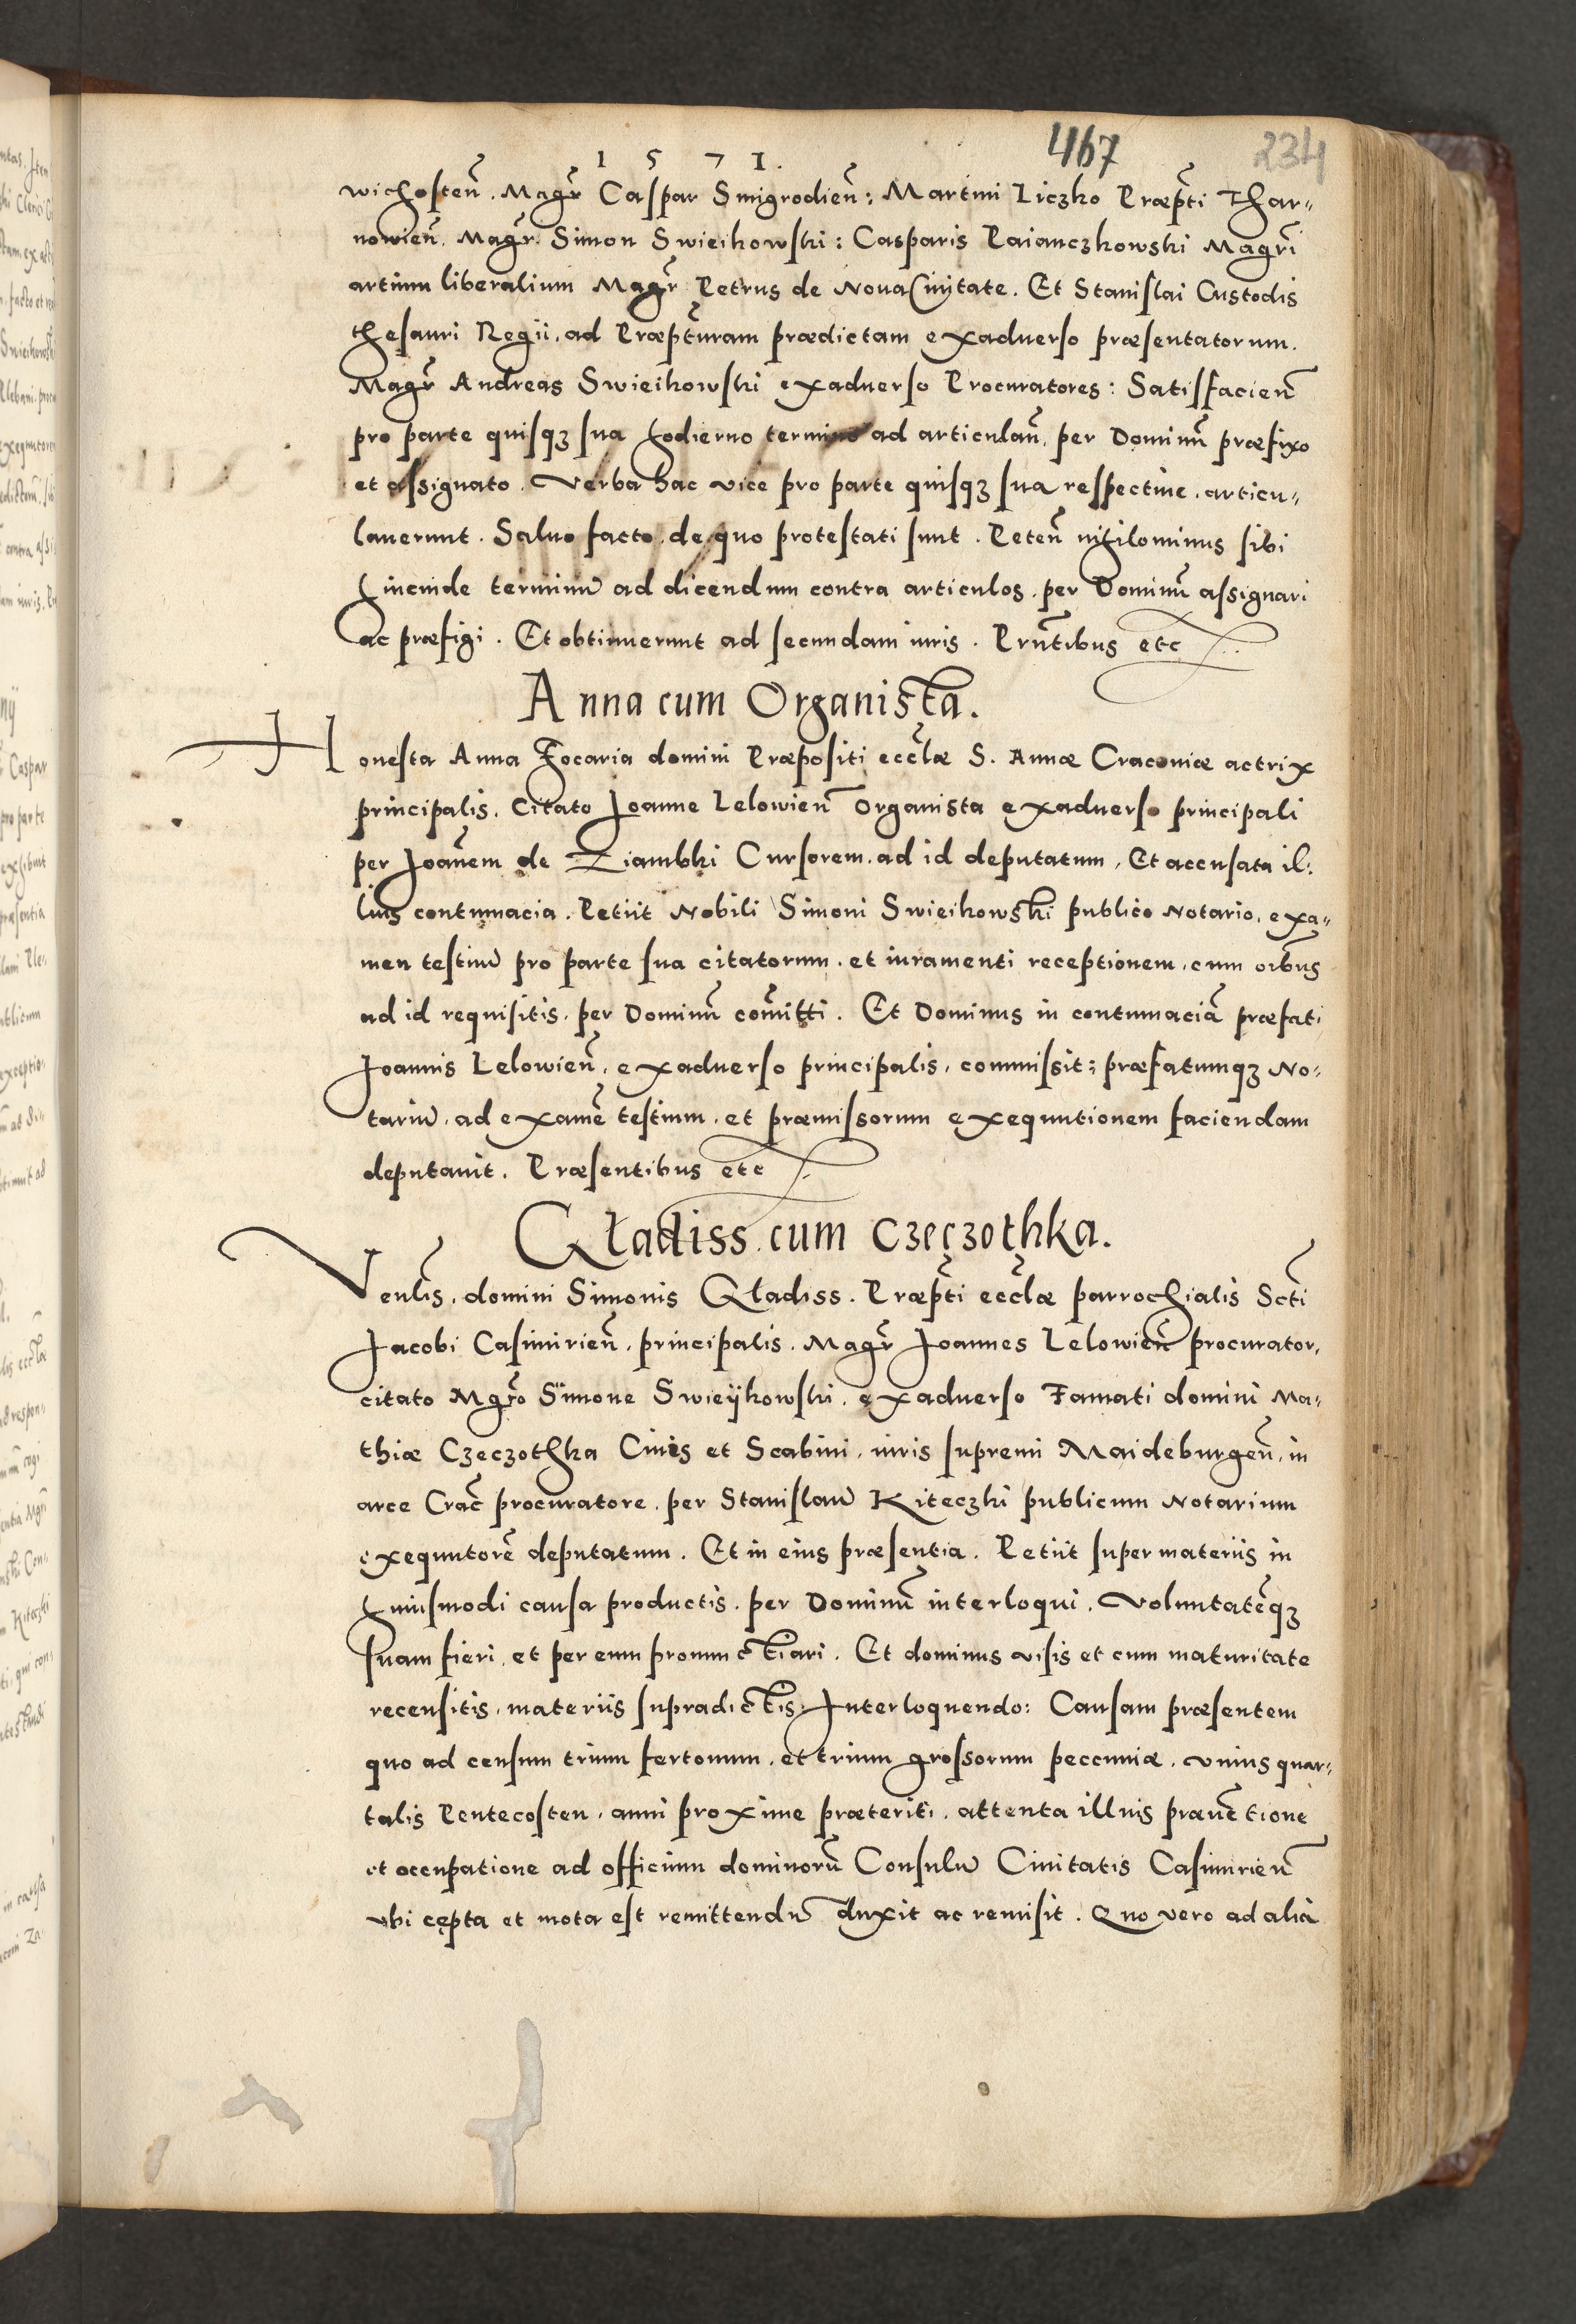 1 5 7 1.
467
234
wichosten̄. Magr̄ Caspar Smigrodien̄: Martini Liczko Præpti Thar„
nowien̄. Magr̄. Simon Swieikowski: Casparis Paianczkowski Magri
artium liberalium Magr̄ Petrus de Noua Ciuitate. Et Stanislai Custodis
thesauri Regii, ad Præpturam prædictam exaduerso præsentatorum.
Magr̄ Andreas Swieikowski exaduerso Procuratores: Satisfacien̄
pro parte quisqꝫ sua hodierno termino ad articulan̄, per Dominū præfixo
et assignato. Verba hac vice pro parte quisqꝫ sua respectiue, articu„
lauerunt. Saluo facto, de quo protestati sunt. Peten̄ nihilominus sibi
hincinde terminū ad dicendum contra articulos, per Dominū assignari
ac præfigi. Et obtinuerunt ad secundam iuris. Prn̄tibus etc
Anna cum Organista.
Honesta Anna Focaria domini Præpositi eccłæ S. Annæ Cracouiæ actrix
principalis. Citato Joanne Lelowien̄ Organista exaduerso principali
per Joan̄em de Ziambki Cursorem, ad id deputatum, Et accusata il:
lius contumacia. Petiit Nobili Simoni Swieikowski publico Notario, exa„
men testiū pro parte sua citatorum, et iuramenti receptionem, cum oībus
ad id requisitis, per Dominū com̄itti. Et Dominus in contumaciā præfati
Joannis Lelowien̄, exaduerso principalis, commissit: præfatumqꝫ No:
tariū, ad examē testium, et præmissorum exequutionem faciendam
deputauit. Præsentibus etc
Gładiss cum Czeczothka.
Venlis, domini Simonis Gładiss. Præpti eccłæ parrochialis Scti
Jacobi Casimirien̄, principalis. Magr̄ Joannes Lelowien̄ procurator,
citato Mgr̄o Simone Swieÿkowski, exaduerso Famati domini Ma„
thiæ Czeczothka Ciuis et Scabini, iuris supremi Maideburgen̄, in
arce Crac̄ procuratore, per Stanislaū Kiteczki publicum Notarium
exequutorē deputatum. Et in eius præsentia. Petiit super materiis in
huiusmodi causa productis, per Dominū interloqui, voluntatēqꝫ
suam fieri, et per eum pronunctiari. Et dominus visis et cum maturitate
recensitis, materiis supradictis, Interloquendo: Causam præsentem
quo ad censum trium fertonum, et trium grossorum peccuniæ, vnius quar„
talis Pentecosten, anni proxime præteriti, attenta illius præuētione
et occupatione ad officium dominorū Consulū Ciuitatis Casimirien̄
vbi cepta et mota est remittendū duxit ac remisit. Quo vero ad aliā